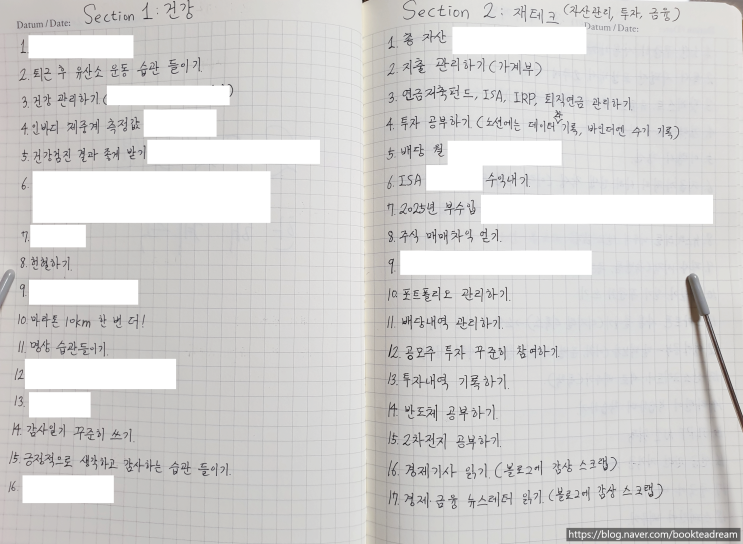 Datum / Date:
Section 1: 건강
1.
2. 퇴근 후 유산소 운동 습관 들이기.
3. 건강 관리하기 (
4. 인바디 체중계 측정값
5. 건강검진 결과 좋게 받기
6.
7.
8. 헌혈하기.
9.
10. 마라톤 10km 한 번 더!
11. 명상 습관들이기.
12
13.
14. 감사일기 꾸준히 쓰기.
15. 긍정적으로 생각하고 감사하는 습관 들이기.
16.
Section 2: 재테크 (자산관리, 투자, 금융)
Datum / Date:
1. 총 자산
2. 지출 관리하기 (가계부)
3. 연금저축펀드, ISA, IRP, 퇴직연금 관리하기
4. 투자 공부하기 (노션에는 데이터 기록, 바인더엔 수기 기록)
5. 배당 월
6. ISA 수익내기.
7. 2025년 부수입
8. 주식 매매차익 얻기.
9.
10. 포트폴리오 관리하기.
11. 배당내역 관리하기.
12. 공모주 투자 꾸준히 참여하기.
13. 투자내역 기록하기.
14. 반도체 공부하기.
15. 2차전지 공부하기.
16. 경제기사 읽기. (블로그에 감상 스크랩)
17. 경제·금융 뉴스레터 읽기. (블로그에 감상 스크랩)
https://blog.naver.com/bookteadream